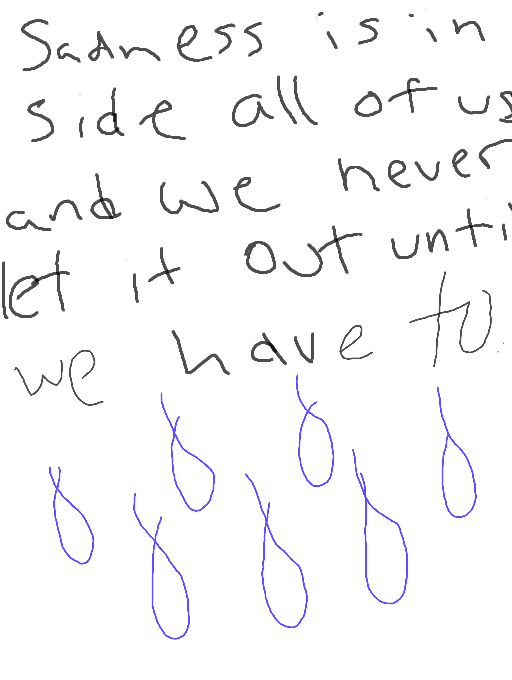 Sadness is in
side all of us
and we never
let it out unti
we have to.